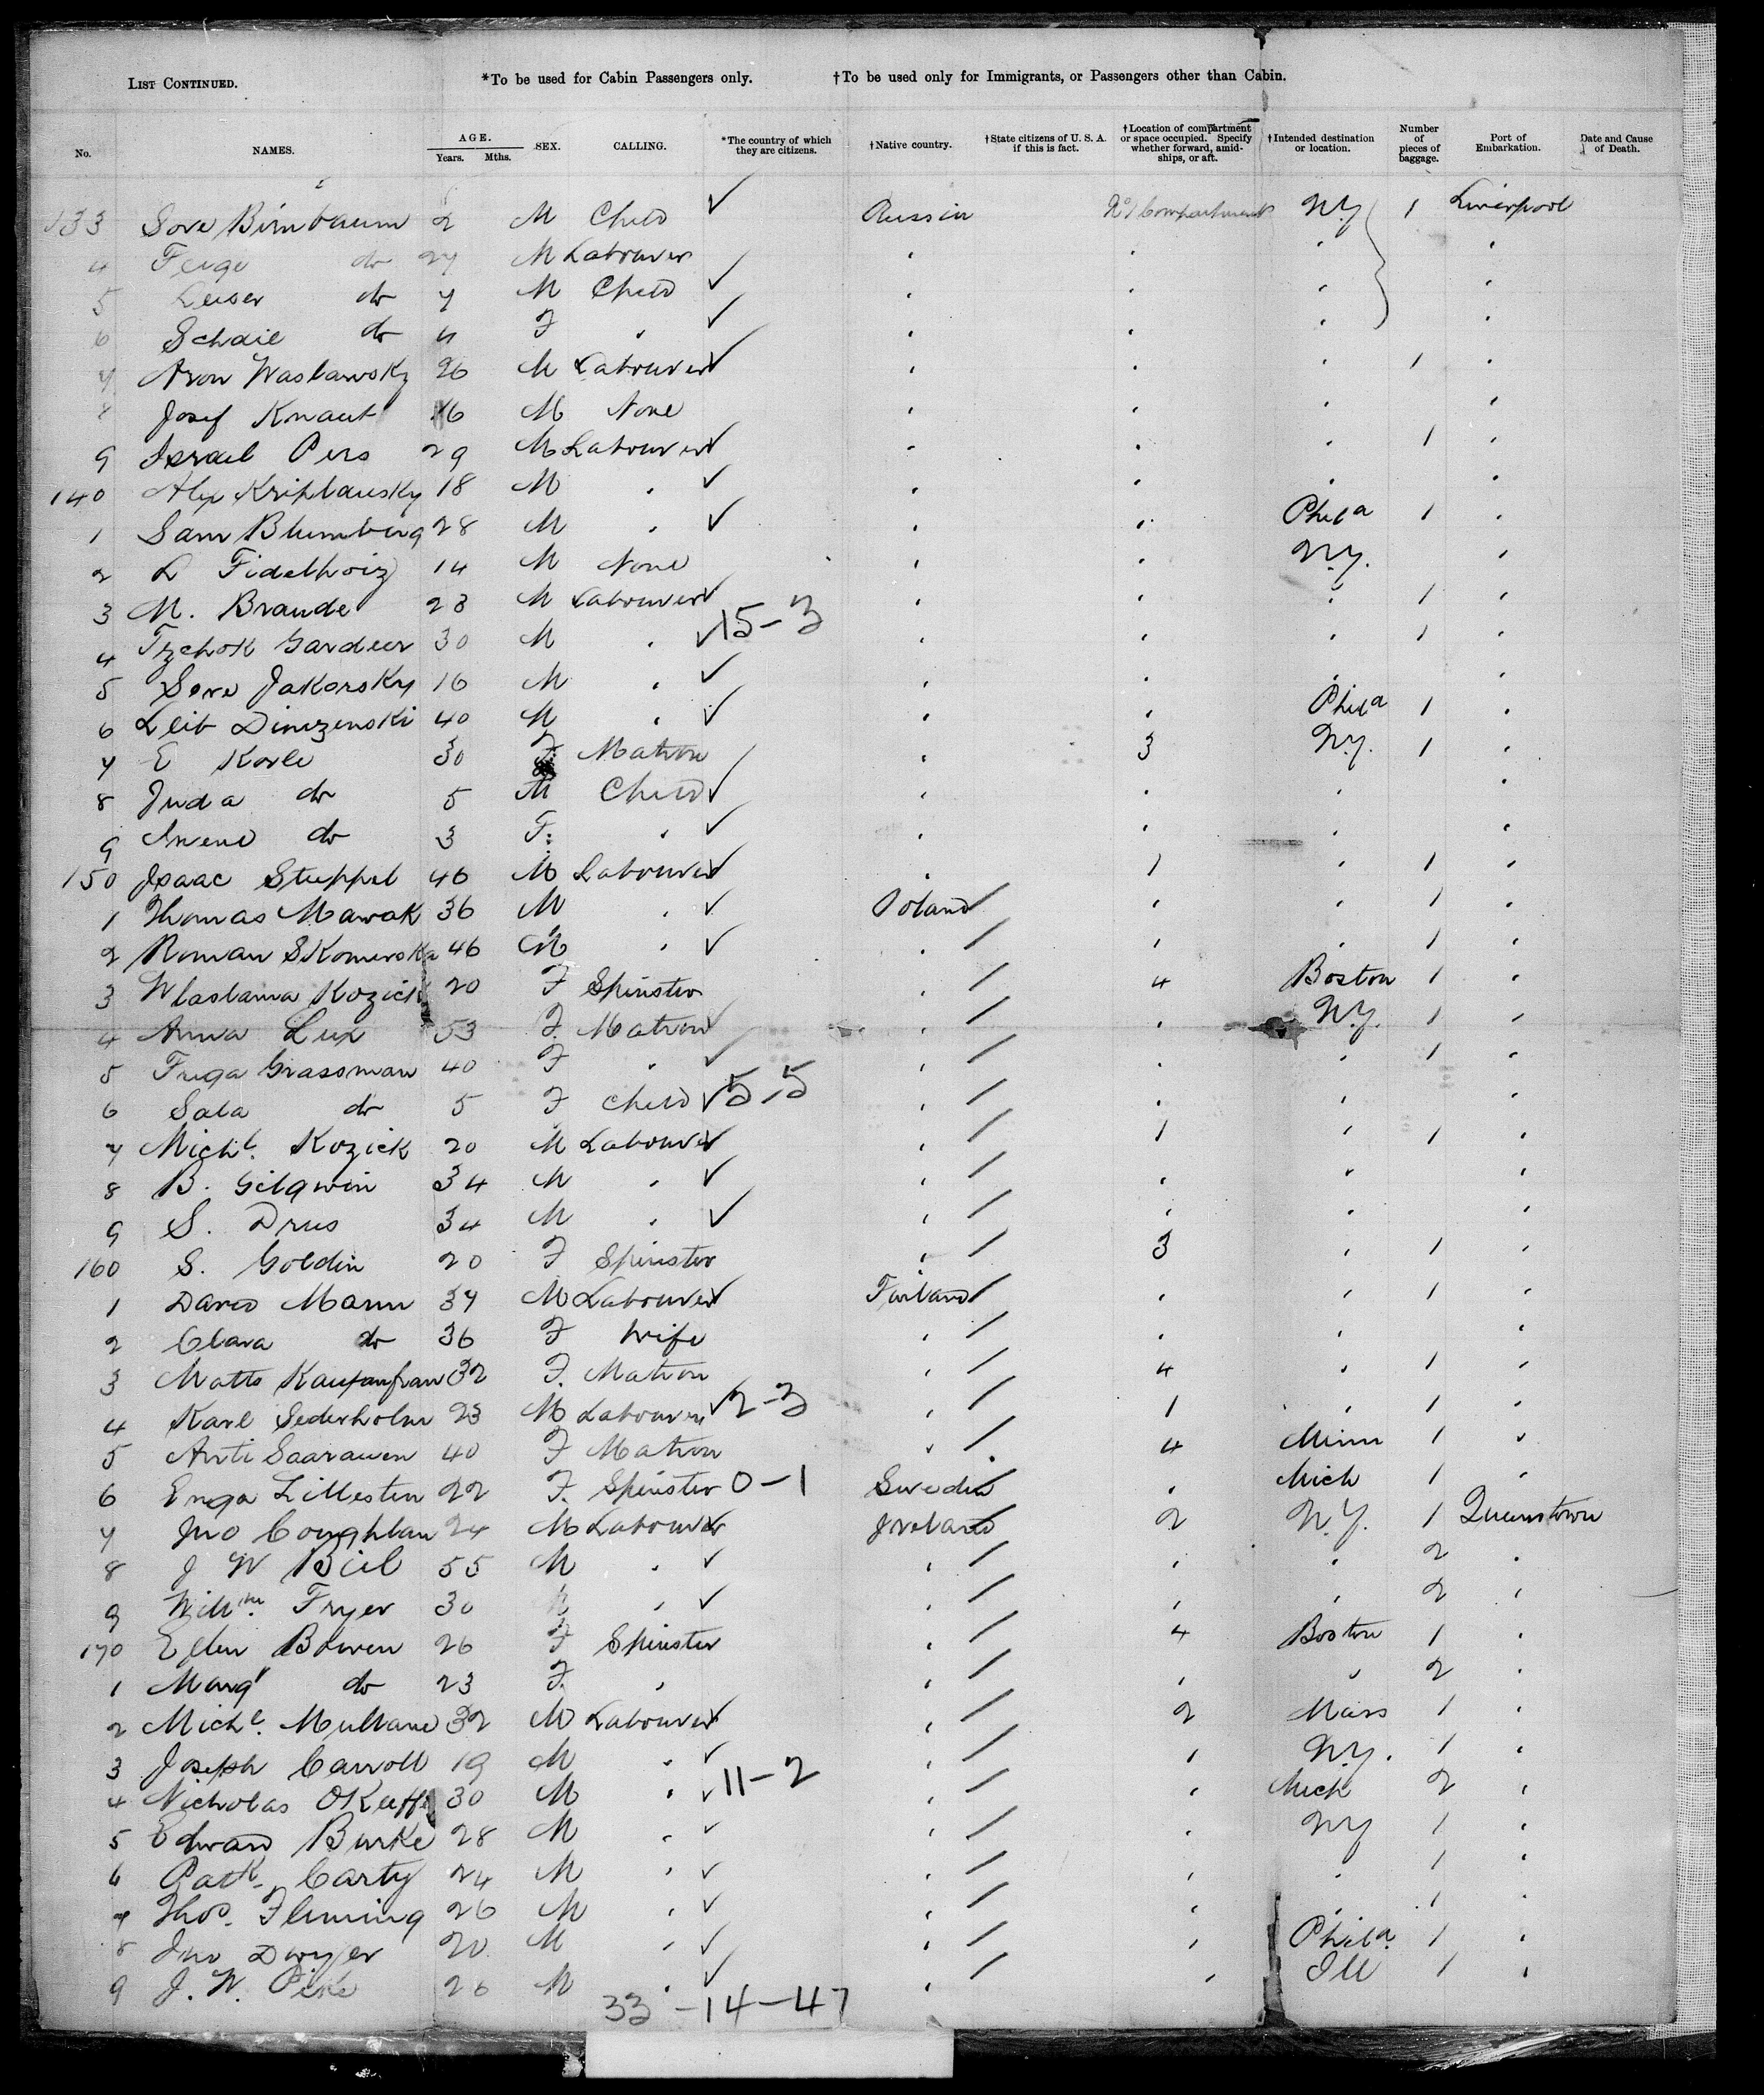 LIST CONTINUED. *To be used for Cabin Passengers only. †To be used only for Immigrants, or Passengers other than Cabin.
No. NAMES. AGE. Years. Mths. SEX. CALLING. *The country of which they are citizens. †Native country. †State citizens of U. S. A. if this is fact. †Location of compartment or space occupied. Specify whether forward, amidships, or aft. †Intended destination or location. Number of pieces of baggage. Port of Embarkation. Date and Cause of Death.
133 Sore Birnbaum 2 M Child ✓ Russia No 1 Compartment N.Y. 1 Liverpool
4 Feige do 27 M Labourer " " " "
5 Leiser do 7 M Child ✓ " " " "
6 Schaie do 11 F " ✓ " " " "
7 Aron Waslawsky 26 M Labourer ✓ " " " 1 "
8 Josef Knaut 16 M None " " " "
9 Israel Pers 29 M Labourer ✓ " " " 1 "
140 Alex Kriplansky 18 M " ✓ " " " "
1 Sam Blumberg 28 M " ✓ " " Phila 1 "
2 L Fidelhoiz 14 M None " " N.Y. "
3 M. Braude 23 M Labourer ✓ " " " 1 "
4 Tzchok Gardeer 30 M " ✓ 15-3 " " " 1 "
5 Sore Jakorsky 16 M " ✓ " " " "
6 Leib Dimzenski 40 M " ✓ " " Phila 1 "
7 E Korle 30 F Matron " 3 N.Y. 1 "
8 Juda do 5 M Child ✓ " " " "
9 do 3 F. " ✓ " " " "
150 Isaac Steppel 46 M Labourer ✓ " 1 " 1 "
1 Thomas Mawak 36 M " ✓ Poland / " " 1 "
2 Roman Skomerska 46 M " ✓ " / " " 1 "
3 Wlaslawa Kozick 20 F Spinster " / 4 Boston 1 "
4 Anna Lux 53 F. Matron ✓ " / " N.Y. 1 "
5 Friga Grassman 40 F " ✓ " / " " 1 "
6 Sala do 5 F Child ✓ 5-5 " / " " "
7 Michl. Kozick 20 M Labourer ✓ " / 1 " 1 "
8 B. Gilgwin 34 M " ✓ " / " " "
9 S. Drus 34 M " ✓ " / " " "
160 S. Goldin 20 F Spinster " / 3 " 1 "
1 David Mann 37 M Labourer ✓ Finland / " " 1 "
2 Clara do 36 F Wife " / " " "
3 Matts 32 F. Matron " / 4 " 1 "
4 Karl Sederholm 23 M Labourer ✓ 2-3 " / 1 " 1 "
5 Anti Saarawen 40 F Matron " / 4 Minn 1 "
6 Enga Lillesten 22 F. Spinster 0-1 Sweden / " Mich 1 "
7 Jno Coughlan 24 M Labourer ✓ Ireland / 2 N.Y. 1 Queenstown
8 J W Biel 55 M " ✓ " / " " 2 "
9 Willm. Fryer 30 M " ✓ " / " " 2 "
170 Ellen Bowen 26 F Spinster " / 4 Boston 1 "
1 Margt do 23 F. " " / " " 2 "
2 Michl. Mullane 32 M Labourer ✓ " / 2 Mass 1 "
3 Joseph Carroll 19 M " ✓ " / 1 N.Y. 1 "
4 Nicholas OKeeffe 30 M " ✓ 11-2 " / " Mich 2 "
5 Edward Burke 28 M " ✓ " / " NY 1 "
6 Patk. Carty 24 M " ✓ " / " " 1 "
7 Thos. Fleming 26 M " ✓ " / " " 1 "
8 Jno Dwyer 20 M " ✓ " / " Phila. 1 "
9 J. W. Pike 26 M " ✓ " / " Ill 1 "
33-14-47